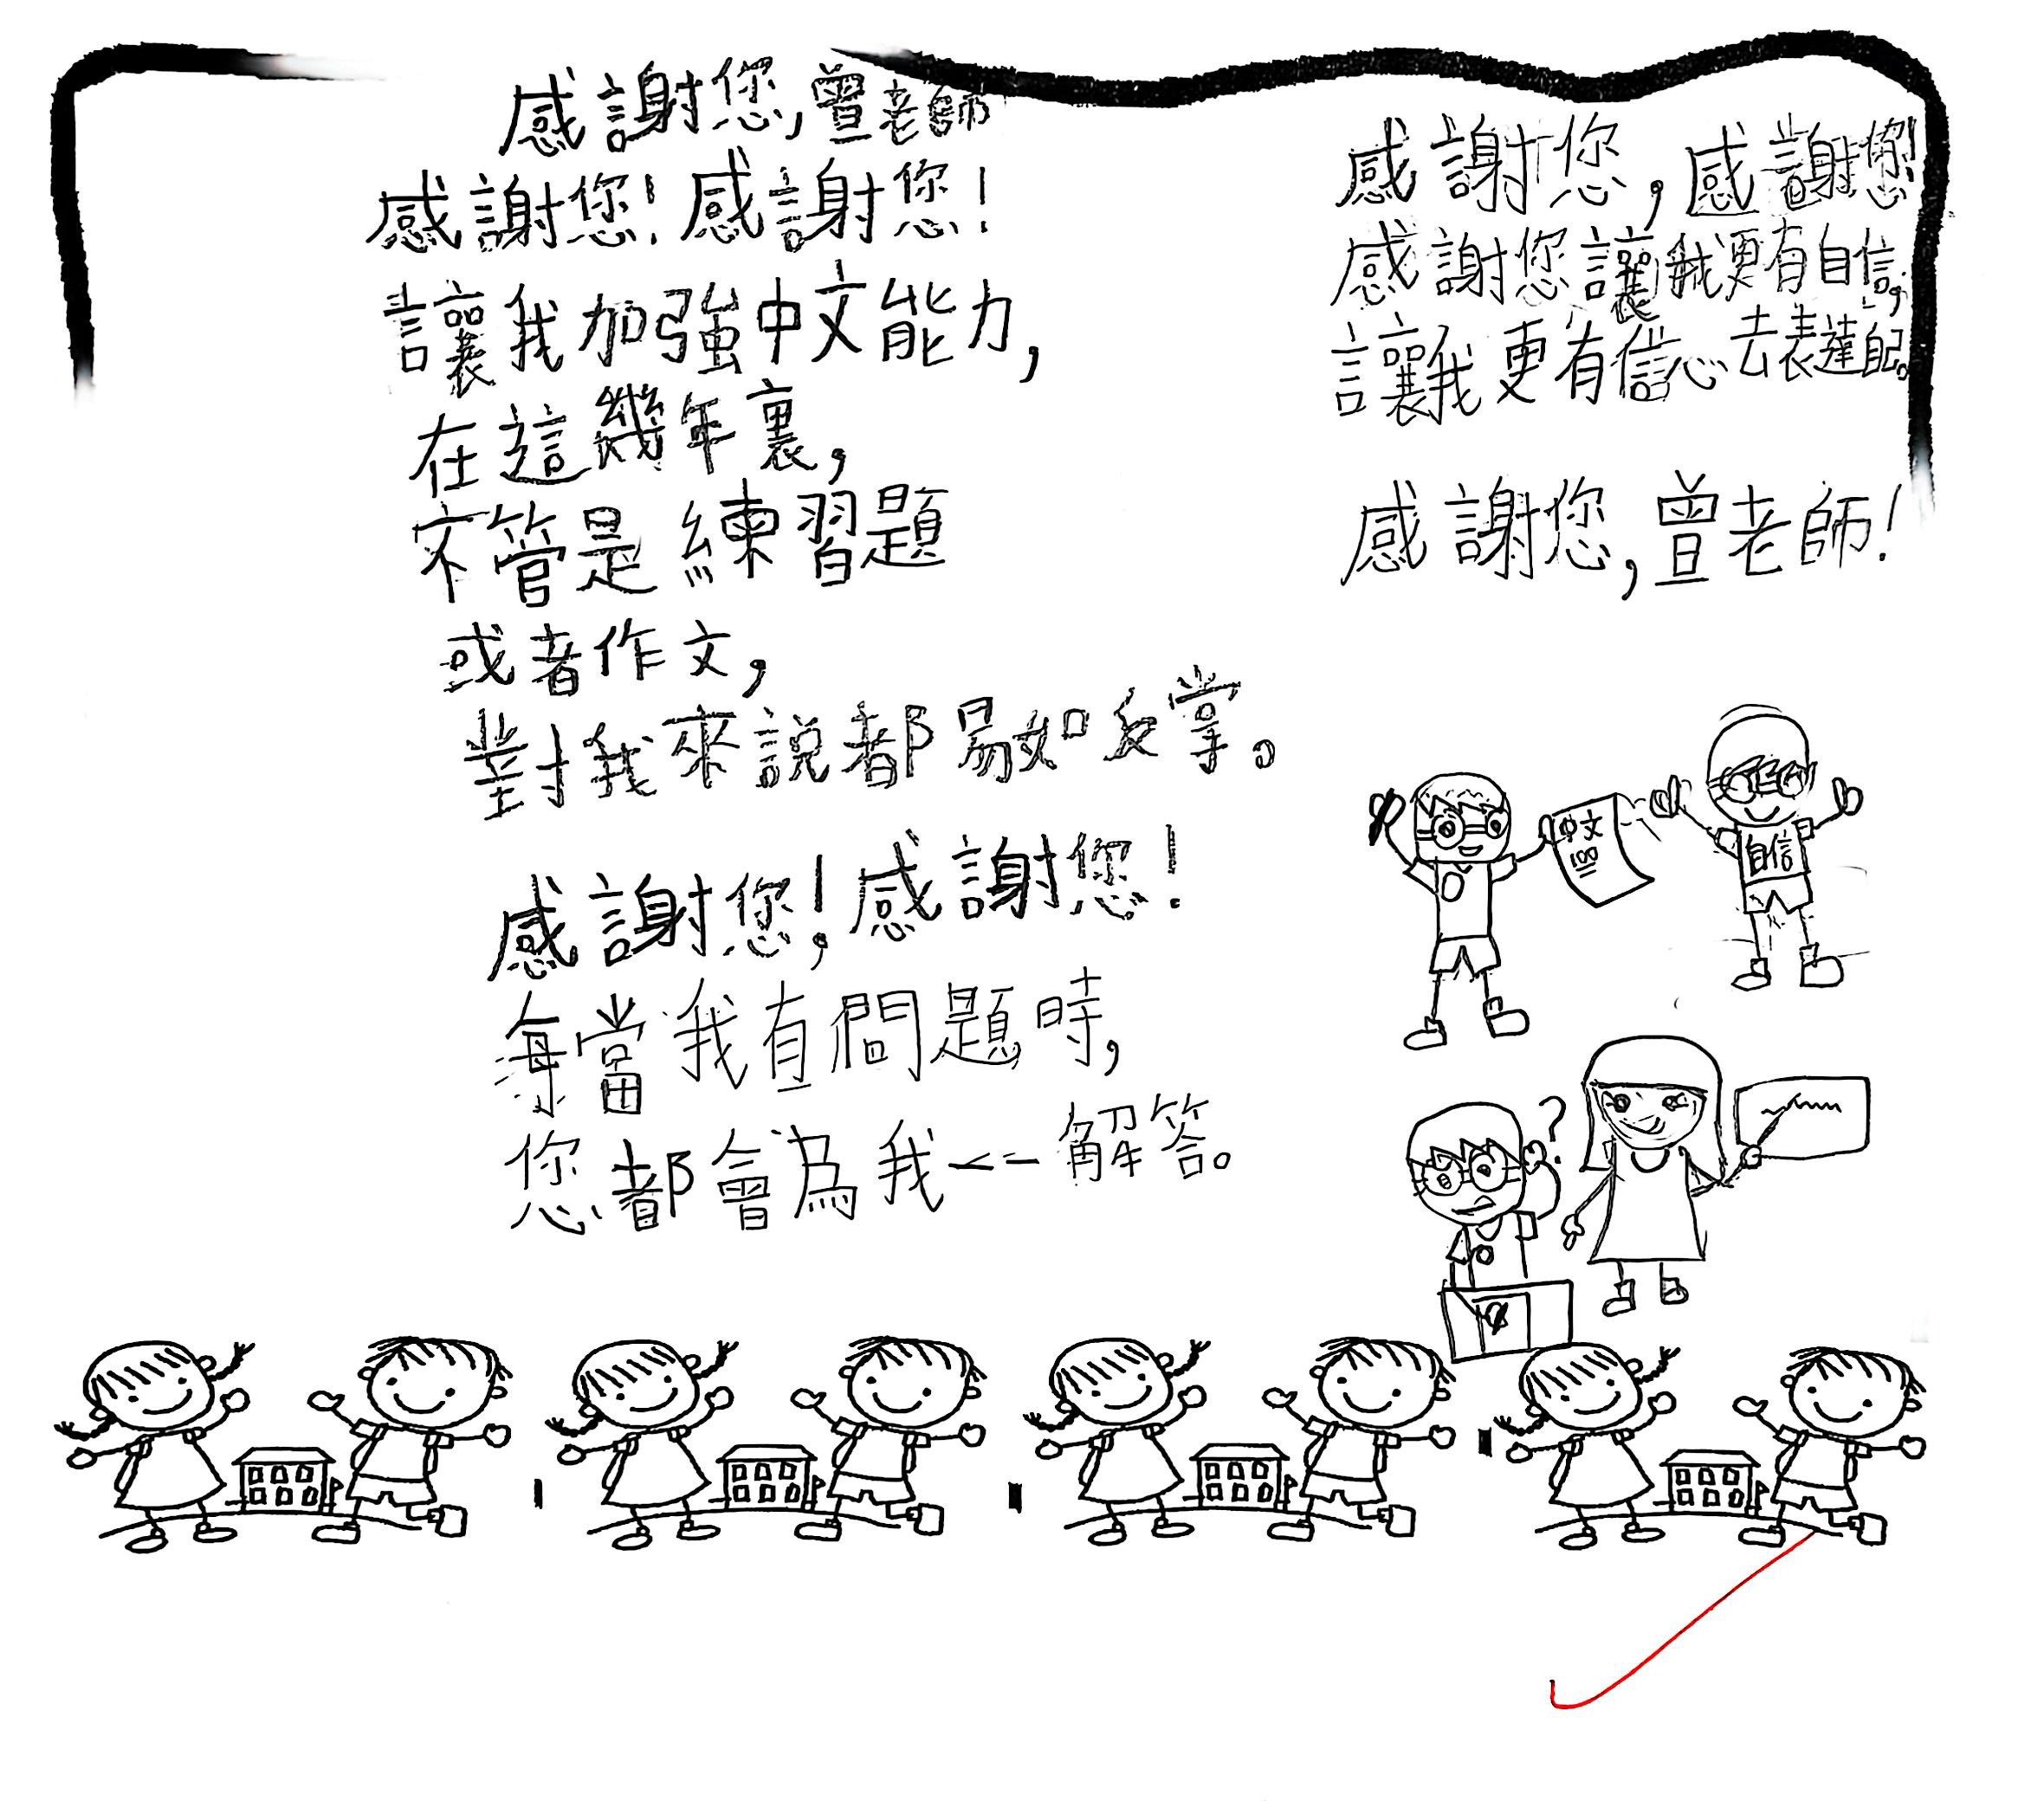 感謝您,曾老師
感謝您!感謝您!
讓我加強中文能力,
在這幾年裏,
不管是練習題
或者作文,
對我來說都易如反掌。
感謝您!感謝您!
每當我有問題時,
您都會為我一一解答。
感謝您,感謝您!
感謝您讓我更有自信,
讓我更有信心去表達自己。
感謝您,曾老師!
中文
100
自信
?